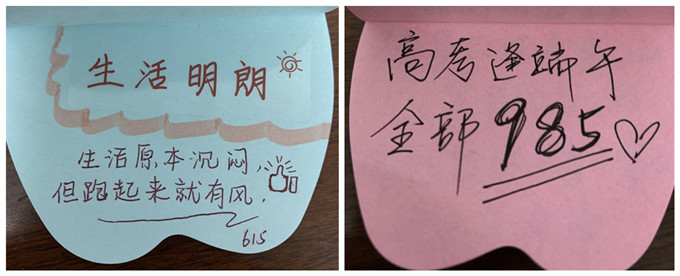 生活明朗
生活原本沉闷
但跑起来就有风.
615
高考逢端午
全部985